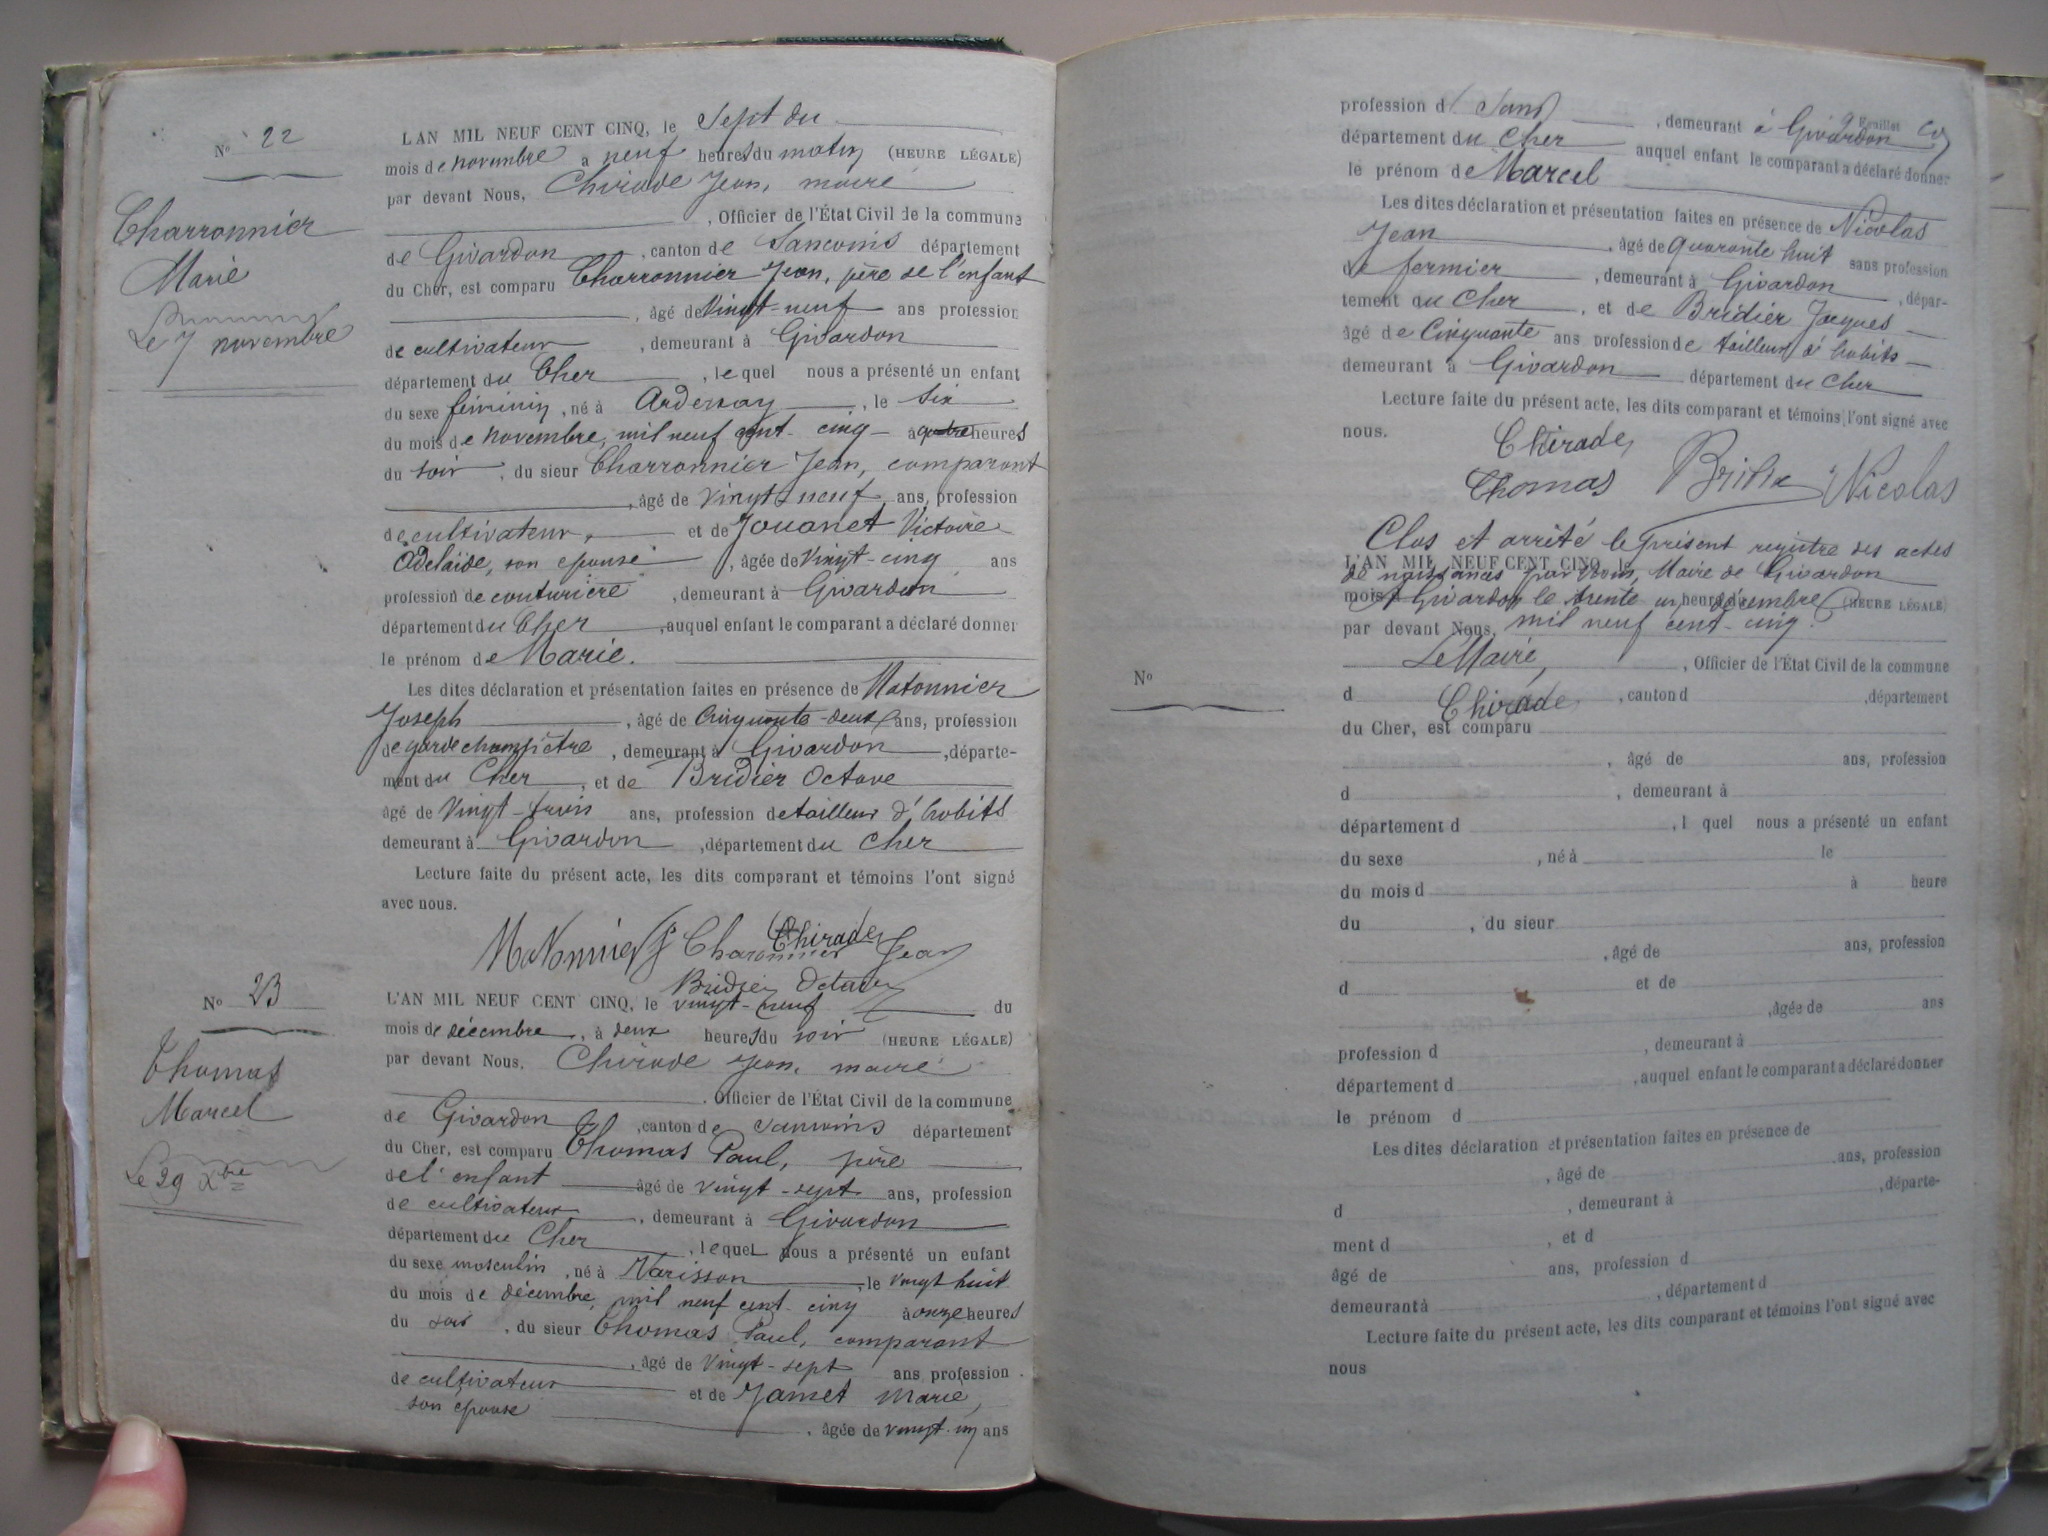 N° 22
Charronnier
Marie
Le 7 novembre
L'AN MIL NEUF CENT CINQ, le Sept du
mois de novembre à neuf heures du matin (HEURE LÉGALE)
par devant Nous, Chirade Jean, maire
, Officier de l'État Civil de la commune
de Givardon , canton de Sancoins département
du Cher, est comparu Charronnier Jean, père de l'enfant
, âgé de Vingt-neuf ans profession
de cultivateur , demeurant à Givardon
département du Cher , lequel nous a présenté un enfant
du sexe féminin, né à , le Six
du mois de novembre, mil neuf cent-cinq à quatre heures
du soir , du sieur Charronnier Jean, comparant
, âgé de vingt neuf ans, profession
de cultivateur, et de Jouanet Victoire
Adelaïde, son épouse , âgée de Vingt-cinq ans
profession de couturière , demeurant à Givardon
département du Cher , auquel enfant le comparant a déclaré donner
le prénom de Marie.
Les dites déclaration et présentation faites en présence de Matonnier
Joseph , âgé de Cinquante-deux ans, profession
de garde champêtre , demeurant à Givardon , départe-
ment du Cher , et de Bridier Octave
âgé de Vingt-trois ans, profession de tailleur d'habits
demeurant à Givardon , département du Cher
Lecture faite du présent acte, les dits comparant et témoins l'ont signé
avec nous.
Matonnier J Charonnier Jean Chirade
Bridier Octave
N° 23
Thomas
Marcel
Le 29 Xbre
L'AN MIL NEUF CENT CINQ, le vingt-neuf du
mois de décembre, à deux heures du soir (HEURE LÉGALE)
par devant Nous, Chirade Jean, maire
, Officier de l'État Civil de la commune
de Givardon , canton de Sancoins département
du Cher, est comparu Thomas Paul, père
de l'enfant âgé de vingt-sept ans, profession
de cultivateur , demeurant à Givardon
département du Cher , lequel nous a présenté un enfant
du sexe masculin , né à Narisson , le vingt huit
du mois de décembre, mil neuf cent-cinq à onze heures
du soir , du sieur Thomas Paul, comparant
, âgé de Vingt-sept ans profession
de cultivateur et de Jamet Marie,
son épouse , âgée de vingt-un ans
profession d Sans , demeurant à Givardon
9 Feuillet
département du Cher auquel enfant le comparant a déclaré donner
le prénom de Marcel
Les dites déclaration et présentation faites en présence de Nicolas
Jean , âgé de quarante huit ans profession
de fermier , demeurant à Givardon , dépar-
tement du Cher , et de Bridier Jacques
âgé de Cinquante ans profession de tailleur d'habits
demeurant à Givardon département du Cher
Lecture faite du présent acte, les dits comparant et témoins l'ont signé avec
nous. Chirade
Thomas Bridier Nicolas
Clos et arrêté le présent registre des actes
L'AN MIL NEUF CENT CINQ, le
de naissances par Nous, Maire de Givardon
mois d heure du (HEURE LÉGALE)
A Givardon le trente un décembre
par devant Nous, mil neuf cent-cinq.
Le Maire, , Officier de l'État Civil de la commune
N°
d , canton d , département
Chirade
du Cher, est comparu
, âgé de ans, profession
d , demeurant à
département d , l quel nous a présenté un enfant
du sexe , né à le
du mois d à heure
du , du sieur
, âgé de ans, profession
d et de
, âgée de ans
profession d , demeurant à
département d , auquel enfant le comparant a déclaré donner
le prénom d
Les dites déclaration et présentation faites en présence de
, âgé de ans, profession
d , demeurant à , départe-
ment d , et d
âgé de ans, profession d
demeurant à , département d
Lecture faite du présent acte, les dits comparant et témoins l'ont signé avec
nous